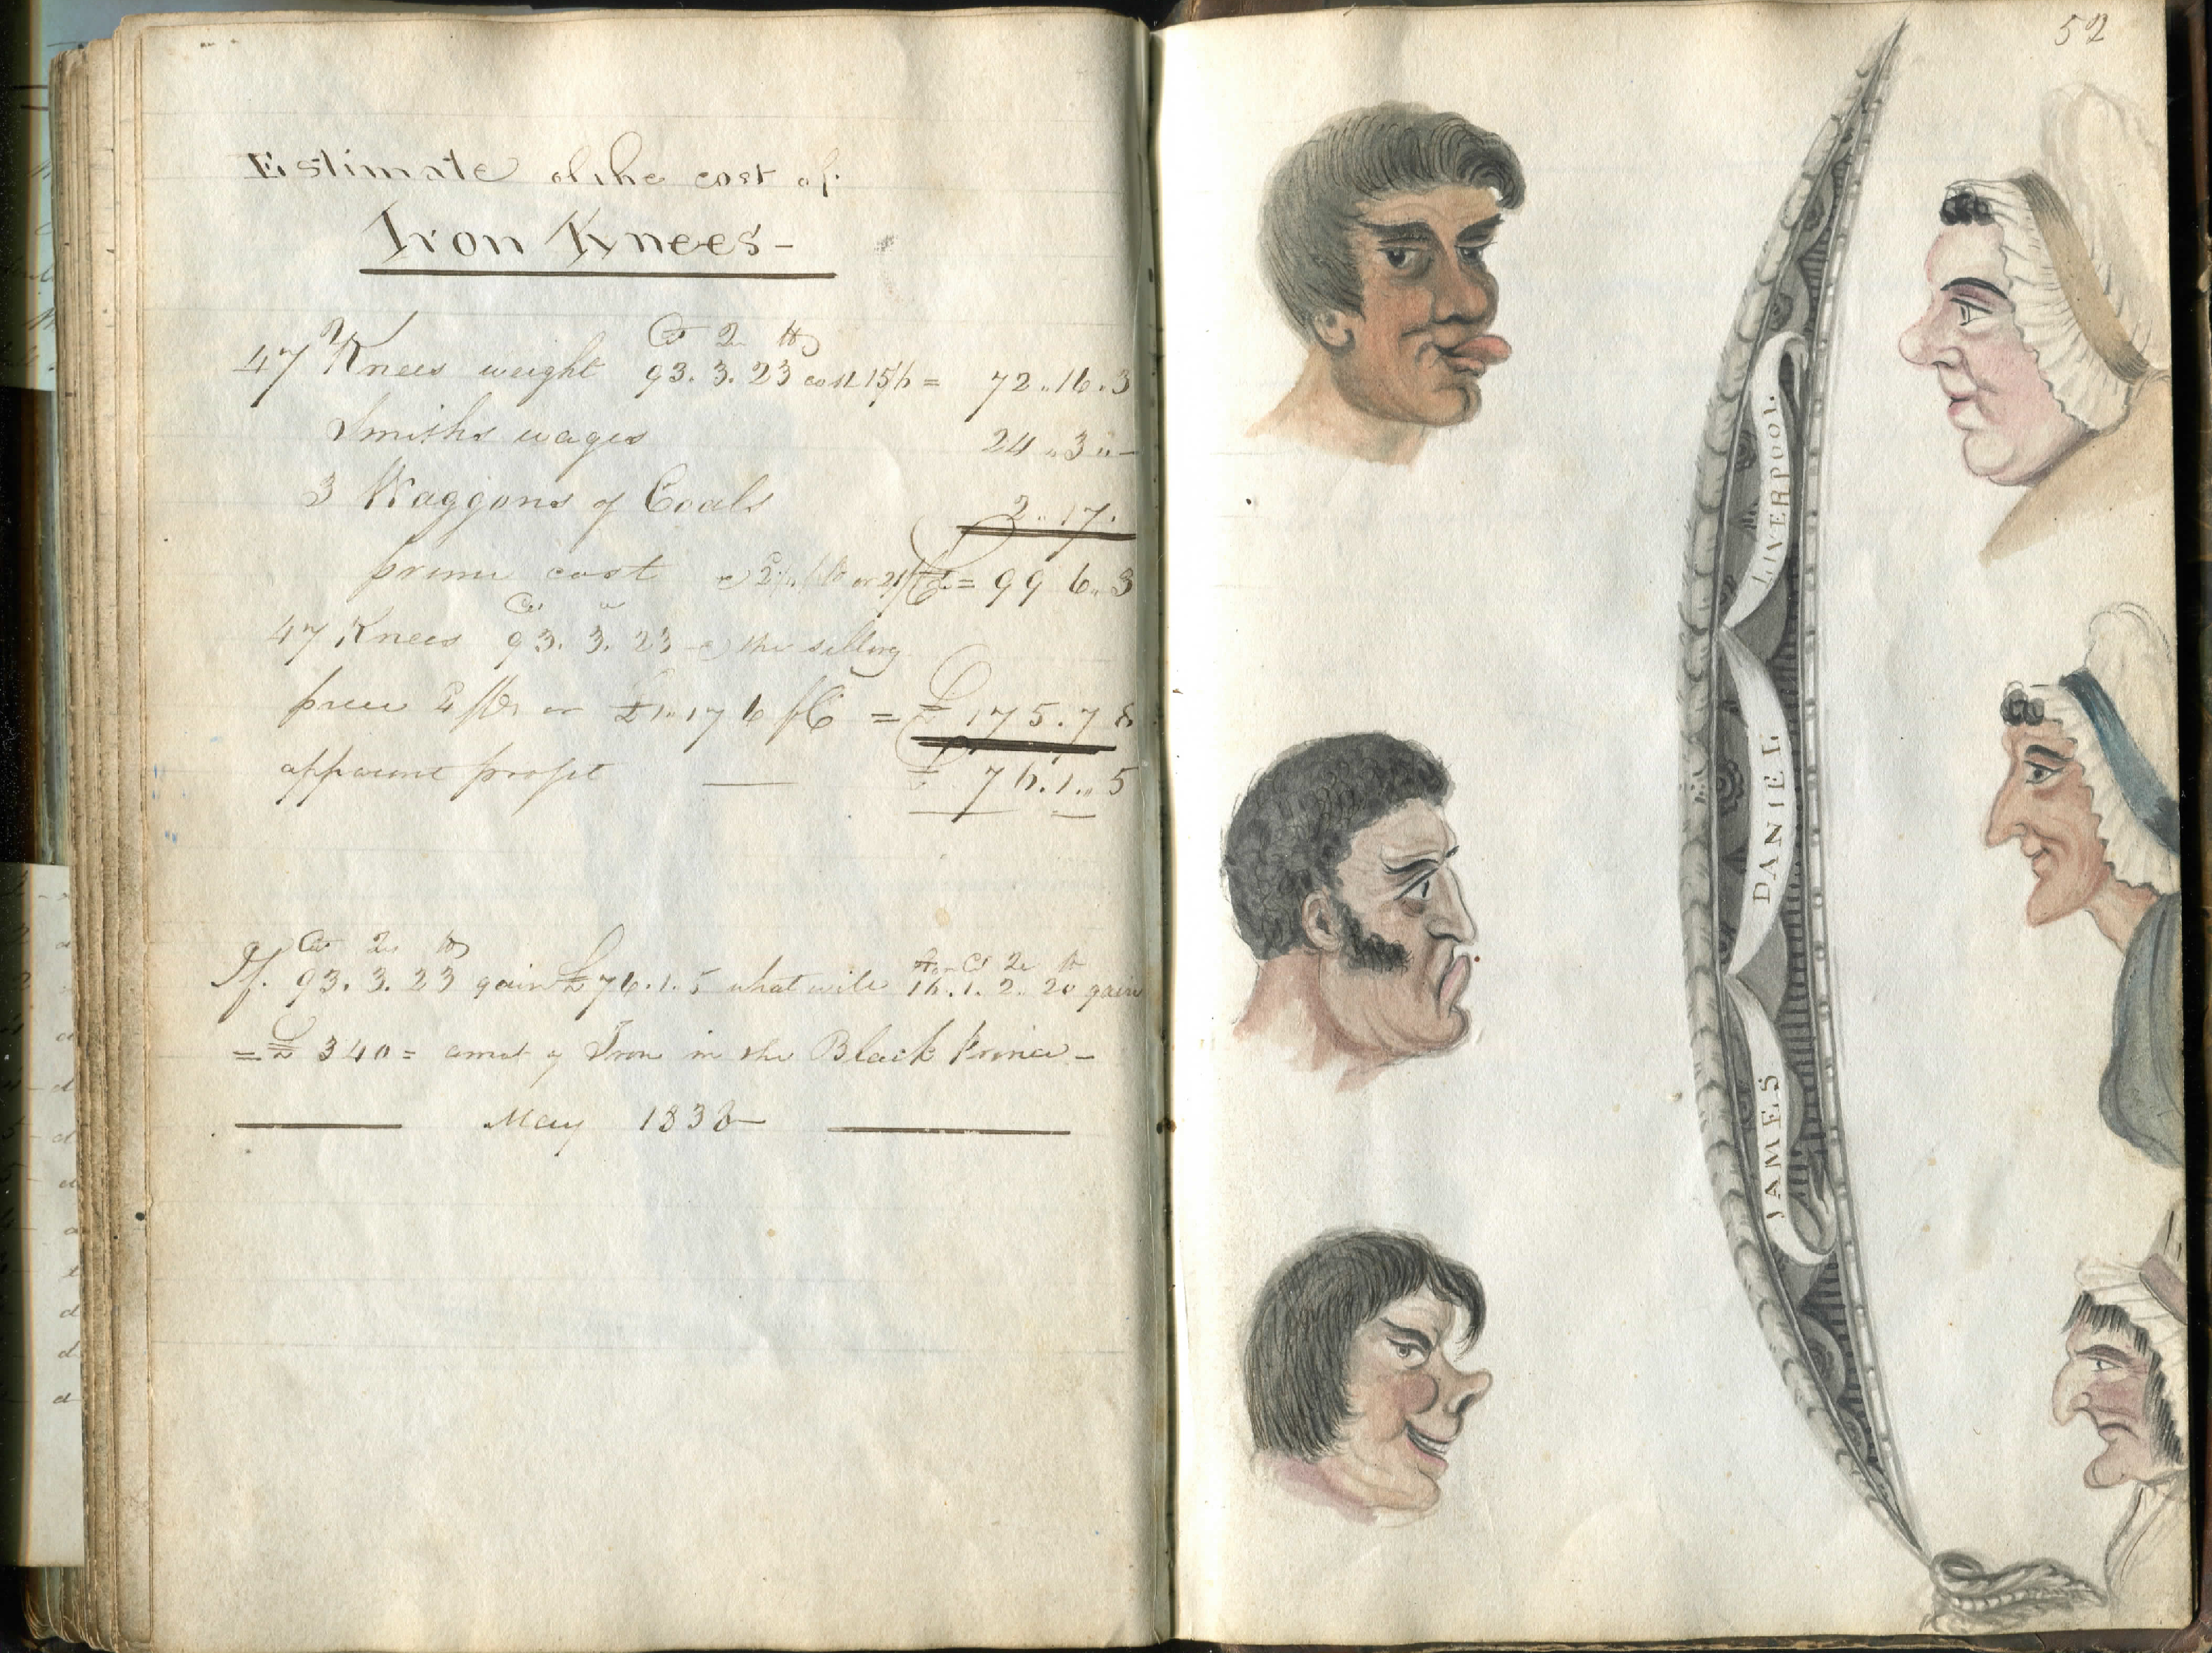 Estimate of the cost of
Iron Knees-
Ct Qr lb
47 Knees weight 93. 3. 23 cost 15/6 = 72 .. 16 . 3
Smiths wages 24 .. 3 .. -
3 Waggons of Coals 2 .. 17 .
prime cost = 99 6 .. 3
47 Knees 93. 3. 23 @ the selling
price or £1 .. 17 6 = £ 175 . 7 8
apparent profit £ 76 . 1 .. 5
Ct Qr lb Ct Qr lb
If. 93. 3. 23 gain £76 . 1 . 5 what will 16 . 1 . 2 . 20 gain
= £ 340 = amot of Iron in the Black Prince -
May 1838
52
LIVERPOOL
DANIEL
JAMES